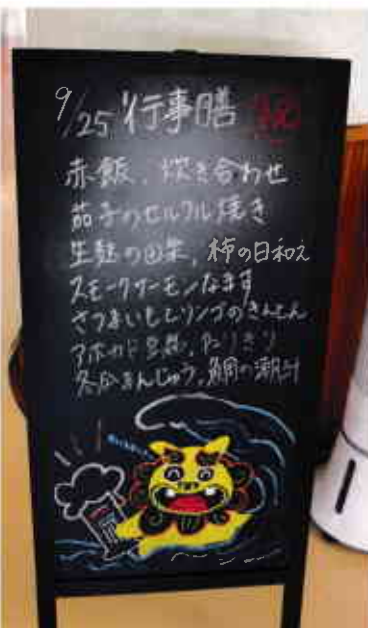 9/25 行事膳 祝
赤飯、炊き合わせ
茄子のセルクル焼き
生麩の田楽、柿の白和え
スモークサーモンなます
さつまいもとリンゴのきんとん
アボカド豆腐、
冬瓜まんじゅう、鯛の潮汁